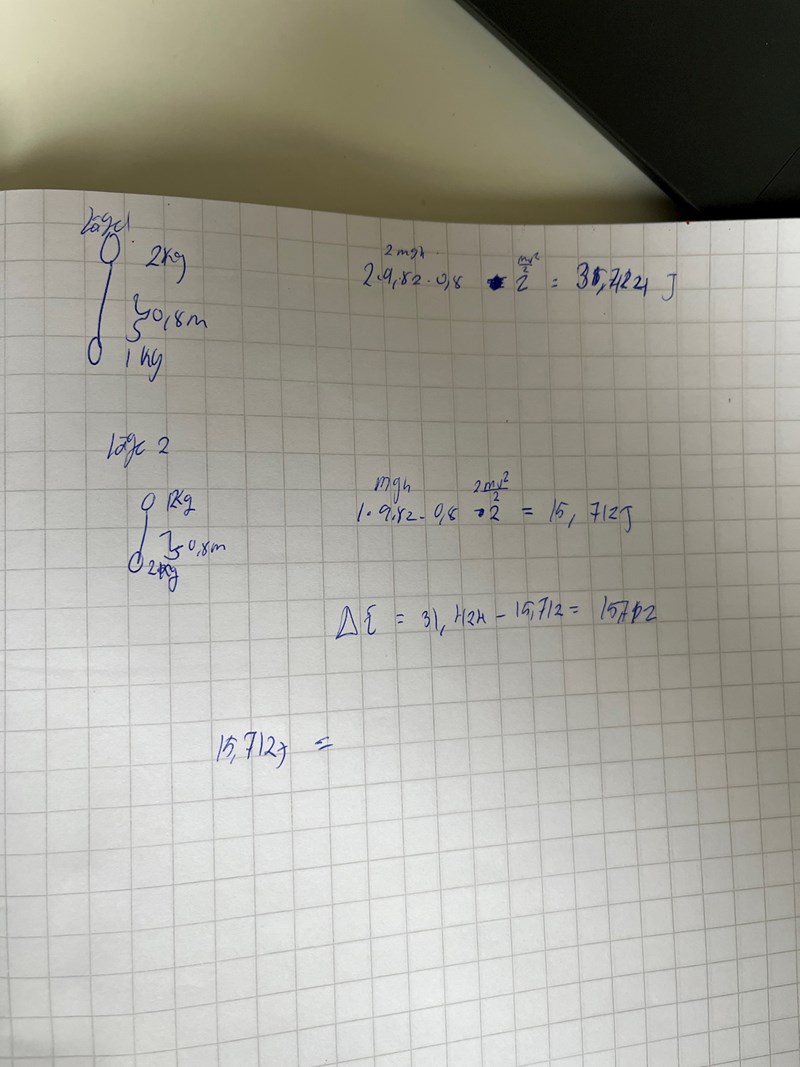 Läge 1
2kg
0,8m
1kg
2mgh mv²/2
2·9,82·0,8 · 2 = 31,424 J
Läge 2
1kg
0,8m
2kg
mgh 2mv²/2
1·9,82·0,8 ·2 = 15,712J
ΔE = 31,424 - 15,712 = 15712
15,712J =